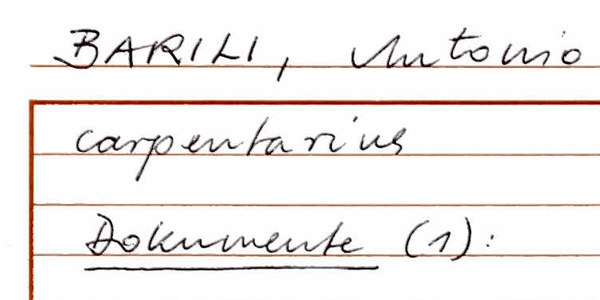 BARILI, Antonio
carpentarius
Dokumente (1):